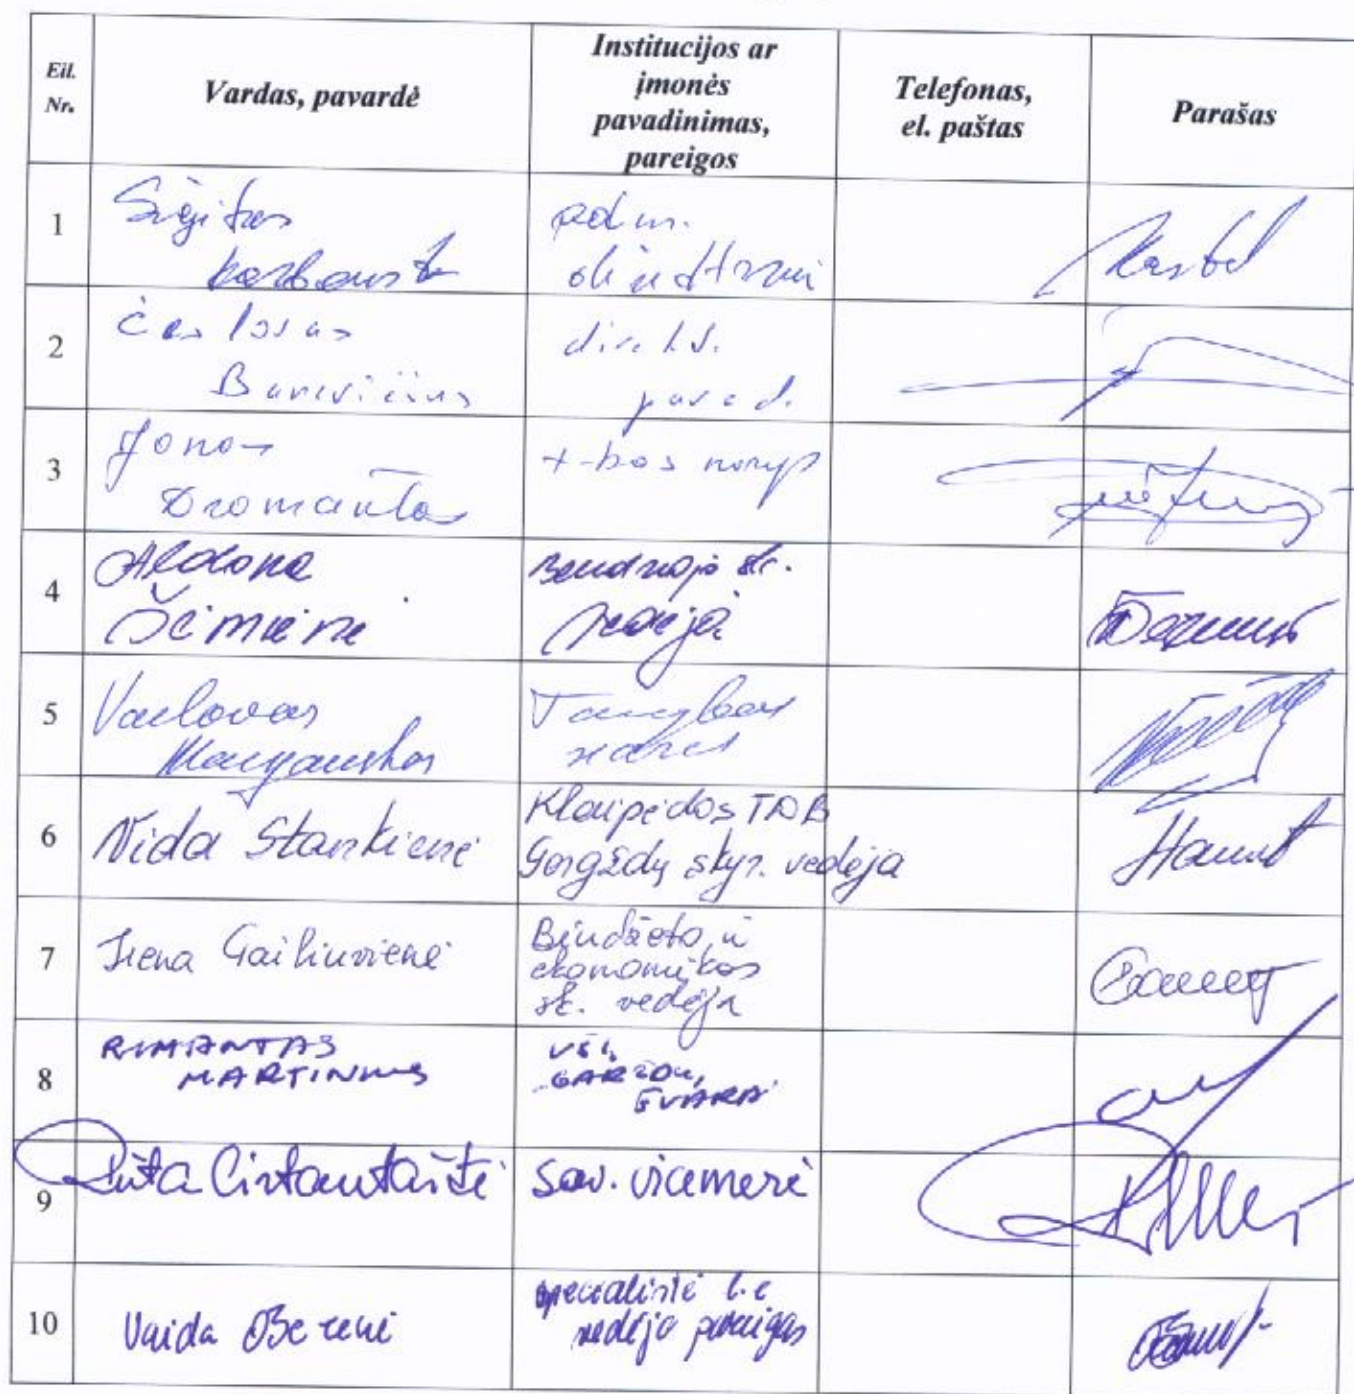 Eil.
Nr.
Vardas, pavardė
Institucijos ar
įmonės
pavadinimas,
pareigos
Telefonas,
el. paštas
Parašas
1
Sigitas
Karbauskas
adm.
direktorius
2
Česlovas
Banevičius
direkt.
pavad.
3
Jonas
Dromantas
t-bos narys
4
Aldona
Ščimienė
Bendrojo sk.
vedėja
5
Vaclovas
Tarybos
narys
6
Vida Stankienė
Klaipėdos TDB
Gargždų skyr. vedėja
7
Irena Gailiuvienė
Biudžeto ir
ekonomikos
sk. vedėja
8
RIMANTAS
MARTINKUS
VŠĮ
GARŽDŲ
ŠVARA
9
Rūta Cirtautaitė
Sav. vicemerė
10
Vaida
specialistė l.e
vedėjo pareigas